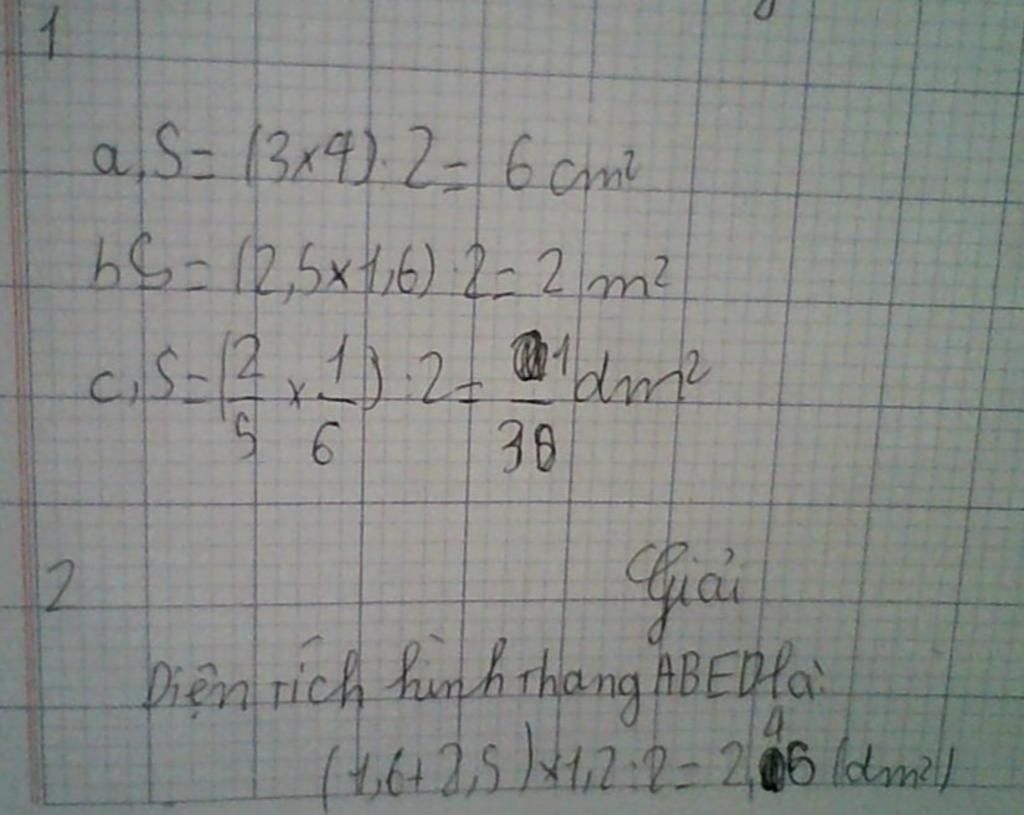 1
a, S = (3 x 4) : 2 = 6 cm²
b, S = (2,5 x 1,6) : 2 = 2 m²
c, S = (2/5 x 1/6) : 2 = 1/30 dm²
2
Giải
Diện tích hình thang ABED là:
(1,6 + 2,5) x 1,2 : 2 = 2,46 (dm²)